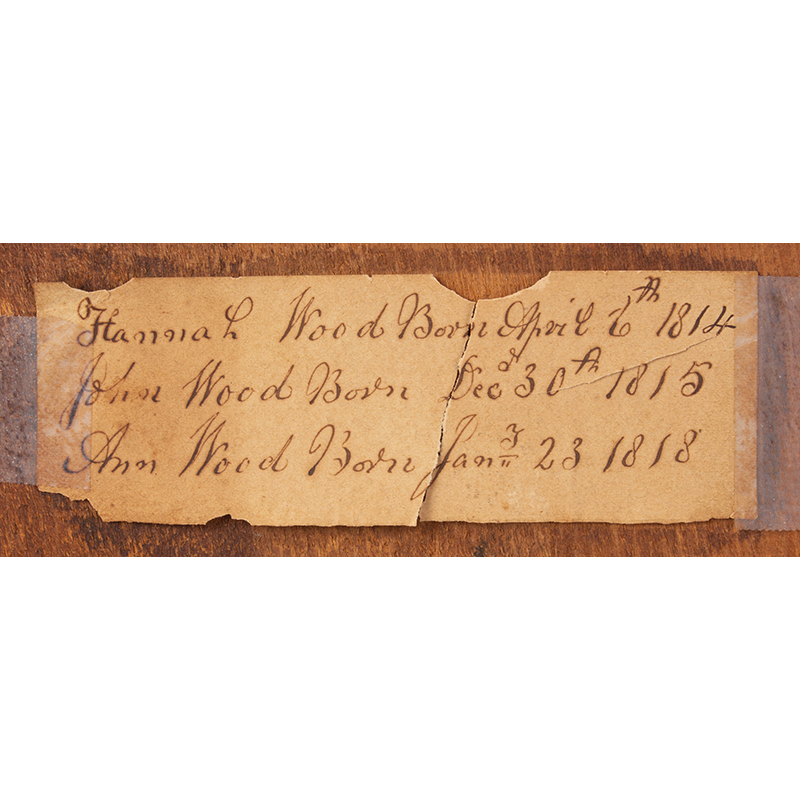 Hannah Wood Born April 6th 1814
John Wood Born Decr 30th 1815
Ann Wood Born Jany 23 1818